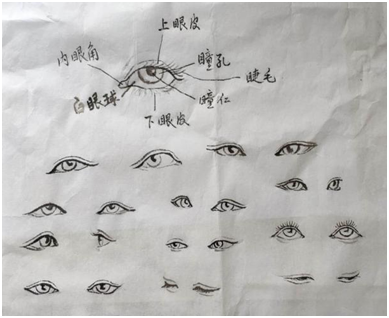 上眼皮
内眼角
瞳孔
睫毛
白眼球
瞳仁
下眼皮